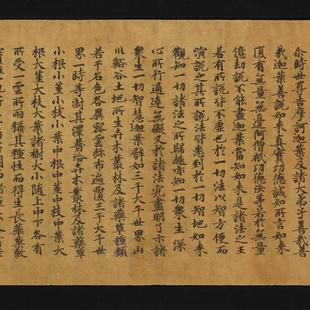 尒時世尊告摩訶迦葉及諸大弟子善哉善
哉迦葉善說如來真實功德誠如所言如來
復有無量無邊阿僧祇功德汝等若於無量
億劫說不能盡迦葉當知如來是諸法之王
若有所說皆不虛也於一切法以智方便而
演說之其所說法皆悉到於一切智地如來
觀知一切諸法之所歸趣亦知一切眾生深
心所行通達無礙又於諸法究盡明了示諸
眾生一切智慧迦葉譬如三千大千世界山
川谿谷土地所生卉木叢林及諸藥草種類
若干名色各異密雲弥布遍覆三千大千世
界一時等澍其澤普洽卉木叢林及諸藥草
小根小莖小枝小葉中根中莖中枝中葉大
根大莖大枝大葉諸樹大小隨上中下各有
所受一雲所雨稱其種性而得生長華菓敷